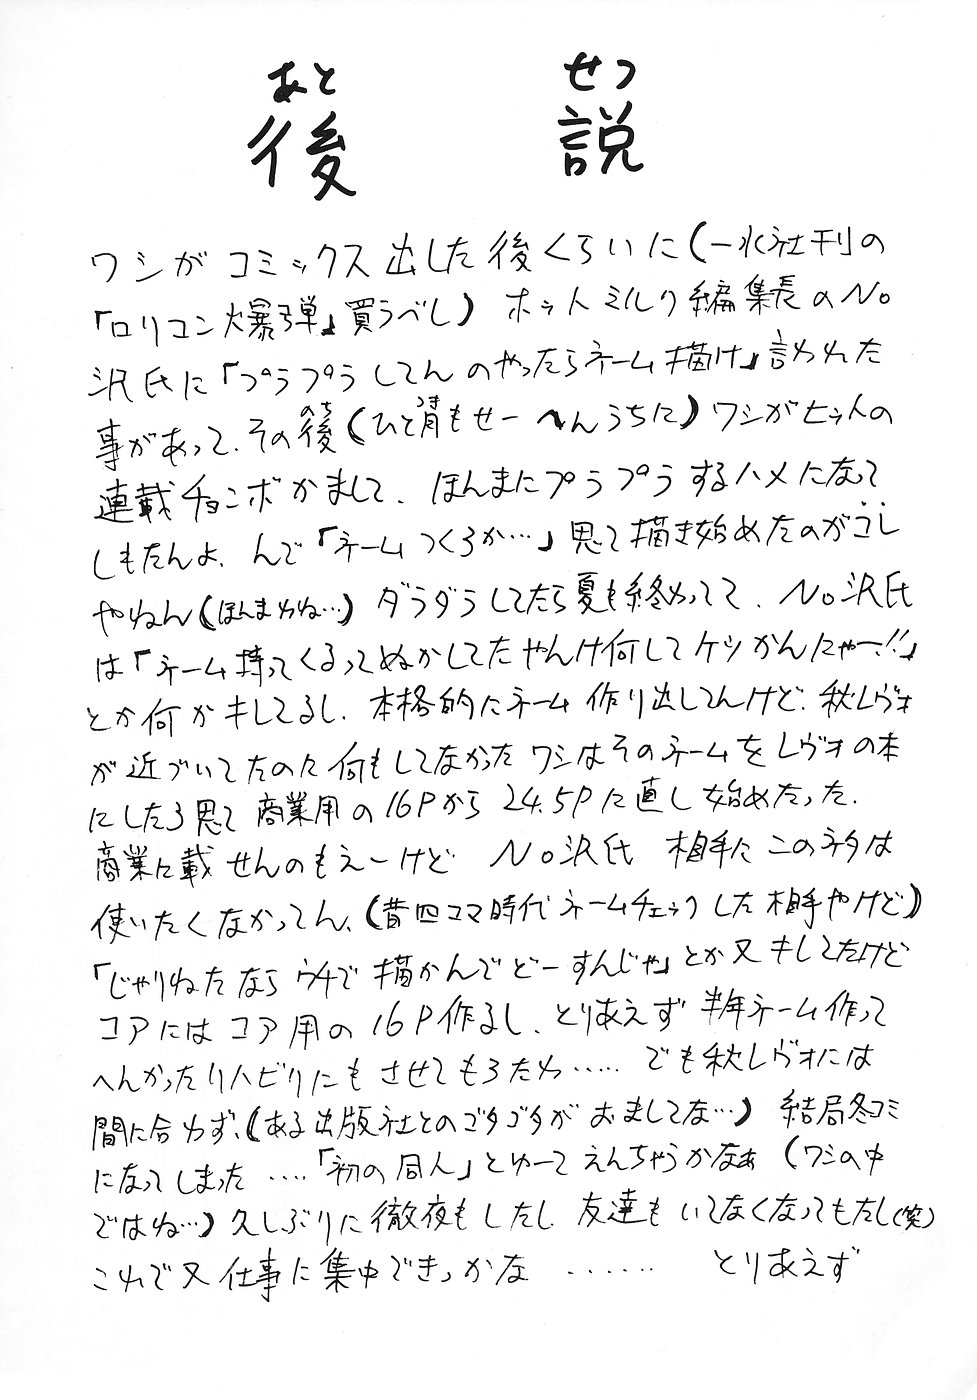 あと　せつ
後　説
ワシがコミックス出した後くらいに(一水社刊の
「ロリコン爆弾」買うべし) ホットミルク編集長のNo
沢氏に「プラプラしてんのやったらネーム描け」言われた
事があって、その後(のち)(ひと月(つき)もせーへんうちに)ワシがヒットの
連載チョンボかまして、ほんまにプラプラするハメになって
しもたんよ、んで「ネームつくろか…」思て描き始めたのがコレ
やねん(ほんまかね…) ダラダラしてたら夏も終わってて、No沢氏
は「ネーム持ってくるってぬかしてたやんけ何してケツかんにゃー!!」
とか何かキしてるし、本格的にネーム作り出してんけど、秋レヴォ
が近づいてたのに何もしてなかったワシはそのネームをレヴォの本
にしたろ思て商業用の16Pから24.5Pに直し始めたった.
商業に載せんのもえーけど No沢氏 相手にこのネタは
使いたくなかってん、(昔四コマ時代ネームチェックした相手やけど)
「じゃりねたならウチで描かんでどーすんじゃ」とか又キしてたけど
コアにはコア用の16P作るし、とりあえず半年ネーム作って
へんかったリハビリにもさせてもろたわ…… でも秋レヴォには
間に合わず、(ある出版社とのゴタゴタがおましてな…) 結局冬コミ
になってしまった ….「初の同人」とゆーてえんちゃうかなぁ (ワシの中
ではね…) 久しぶりに徹夜もしたし 友達もいてなくなってもたし(笑)
これで又仕事に集中できっかな …… とりあえず